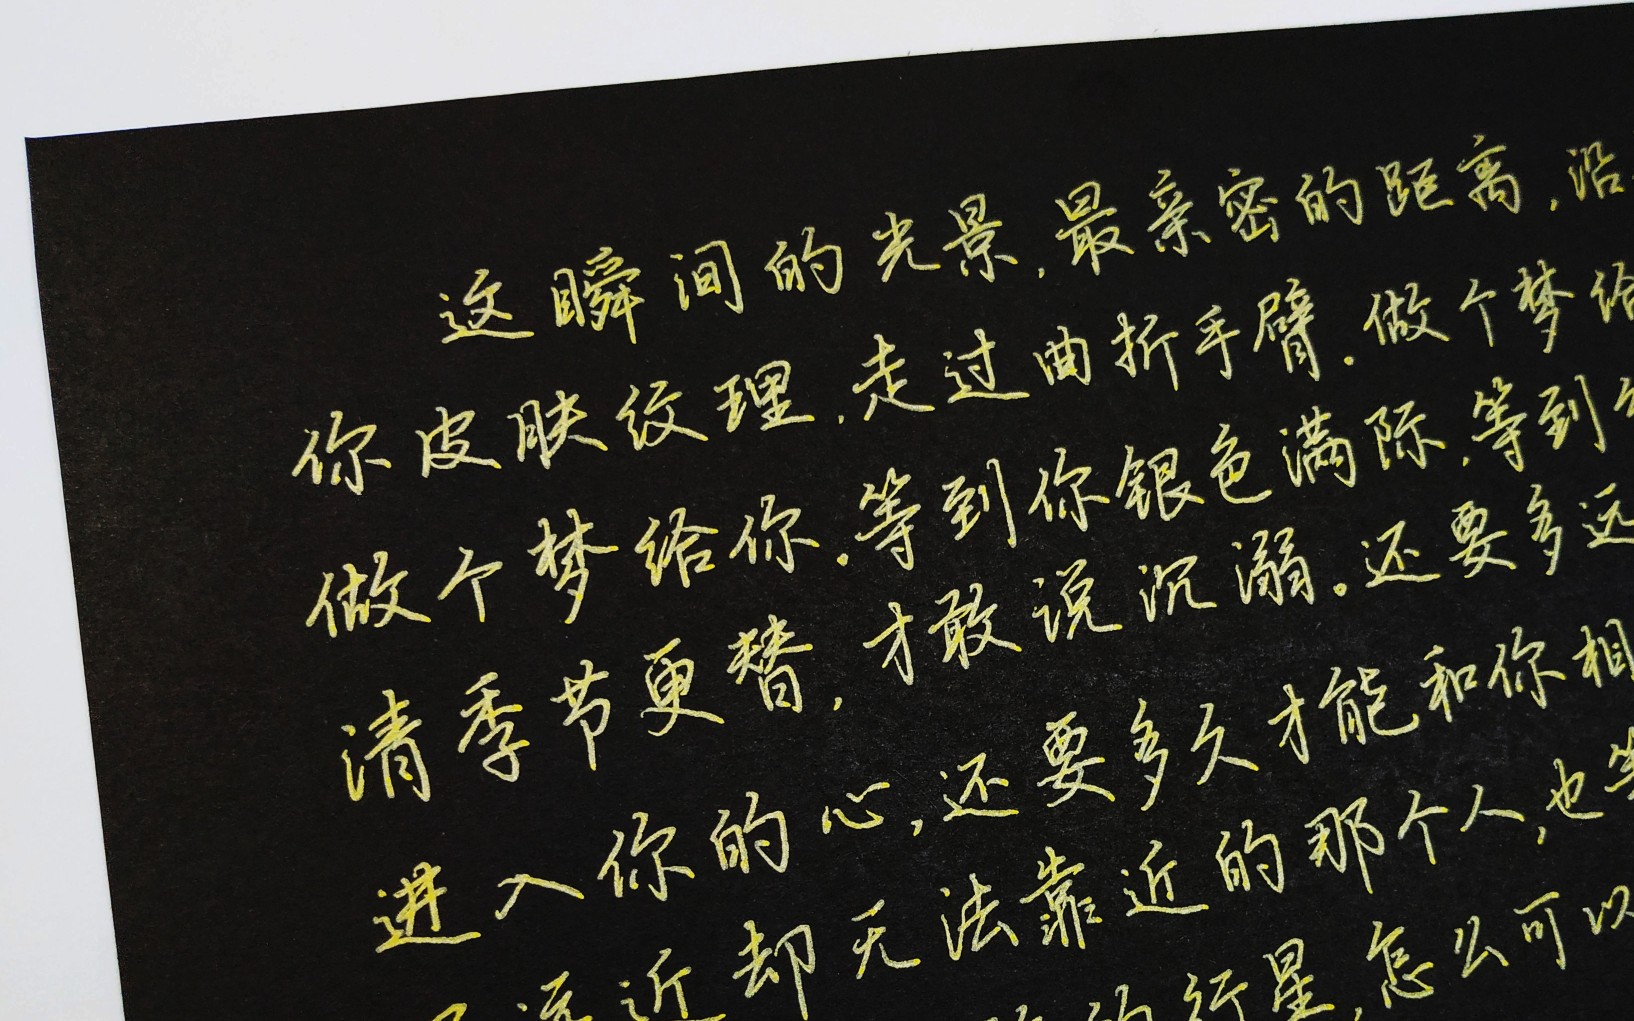 这瞬间的光景,最亲密的距离,沿
你皮肤纹理,走过曲折手臂.做个梦给
做个梦给你.等到你银色满际,等到
清季节更替,才敢说沉溺。还要多远
进入你的心,还要多久才能和你相
远近却无法靠近的那个人,也等
的行星,怎么可以